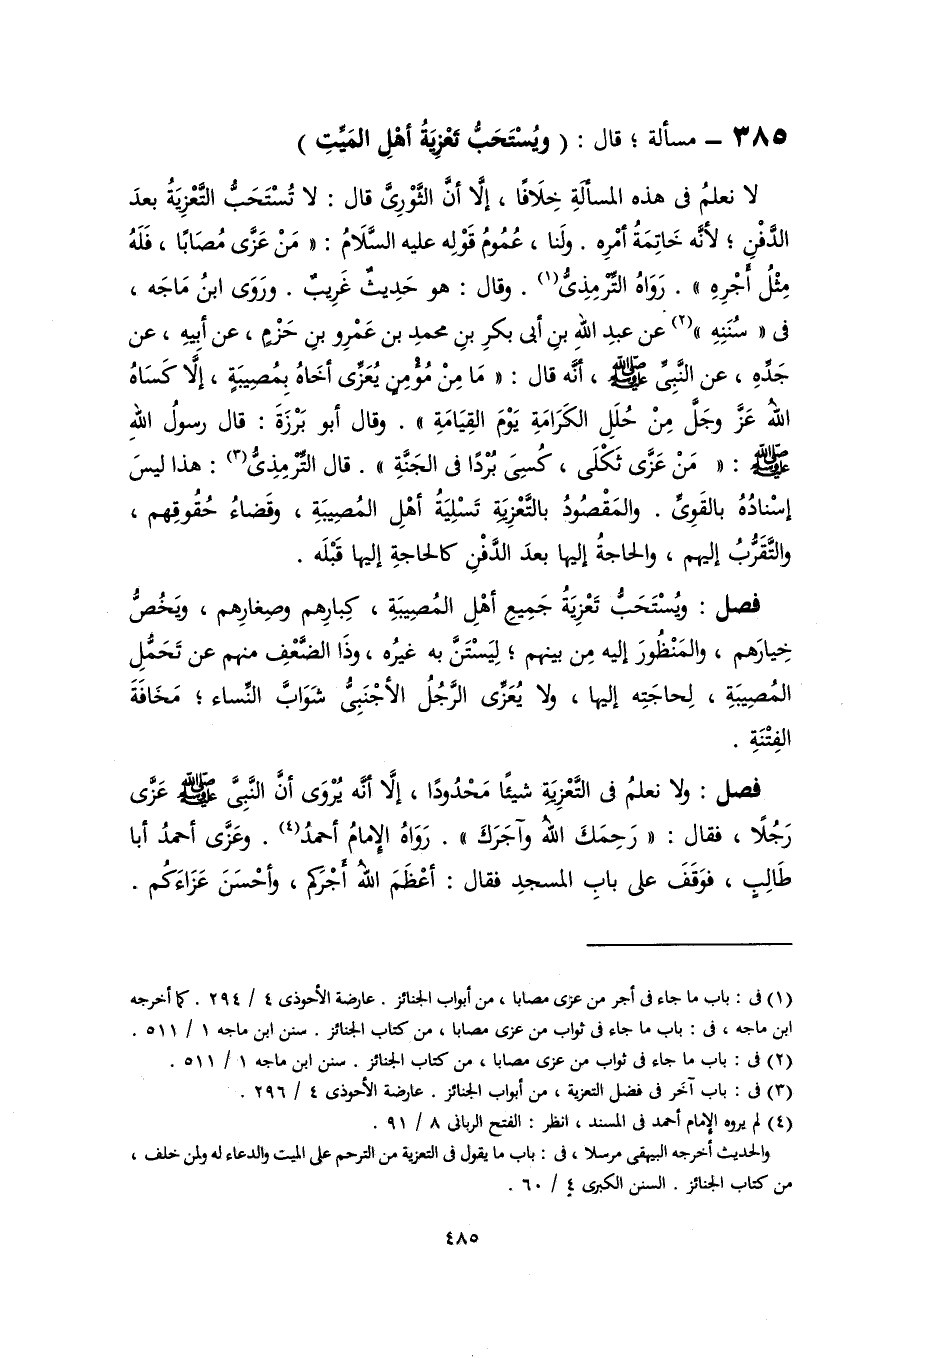 ٣٨٥ – مسألة ؛ قال : ( ويُسْتَحَبُّ تَعْزِيَةُ أهْلِ المَيِّتِ )
لا نعلمُ فى هذه المسألَةِ خِلَافًا ، إلَّا أنَّ الثَّوْرِىَّ قال : لا تُسْتَحَبُّ التَّعْزِيَةُ بعدَ
الدَّفْنِ ؛ لأنَّه خَاتِمَةُ أمْرِه . ولَنا ، عُمُومُ قَوْلِه عليه السَّلَامُ : « مَنْ عَزَّى مُصَابًا ، فَلَهُ
مِثْلُ أَجْرِهِ » . رَوَاهُ التِّرْمِذِىُّ(١) . وقال : هو حَدِيثٌ غَرِيبٌ . ورَوَى ابنُ مَاجَه ،
فى « سُنَنِهِ »(٢) عن عبدِ اللهِ بنِ أبى بكرِ بنِ محمدِ بن عَمْرِو بنِ حَزْمٍ ، عن أبِيهِ ، عن
جَدِّهِ ، عن النَّبِىِّ ﷺ ، أنَّه قال : « مَا مِنْ مُؤْمِنٍ يُعَزِّى أخَاهُ بِمُصِيبَةٍ ، إلَّا كَسَاهُ
اللهُ عَزَّ وجَلَّ مِنْ حُلَلِ الكَرَامَةِ يَوْمَ القِيَامَةِ » . وقال أبو بَرْزَةَ : قال رسولُ اللهِ
ﷺ : « مَنْ عَزَّى ثَكْلَى ، كُسِىَ بُرْدًا فى الجَنَّةِ » . قال التِّرْمِذِىُّ(٣) : هذا ليسَ
إسْنادُهُ بالقَوِىِّ . والمَقْصُودُ بالتَّعْزِيَةِ تَسْلِيَةُ أهْلِ المُصِيبَةِ ، وقَضاءُ حُقُوقِهم ،
والتَّقَرُّبُ إليهم ، والحاجةُ إليها بعدَ الدَّفْنِ كالحاجةِ إليها قَبْلَه .
فصل : ويُسْتَحَبُّ تَعْزِيَةُ جَمِيعِ أهْلِ المُصِيبَةِ ، كِبارِهم وصِغارِهم ، ويَخُصُّ
خِيارَهم ، والمَنْظُورَ إليه مِن بينِهم ؛ لِيَسْتَنَّ به غيرُه ، وذَا الضَّعْفِ منهم عن تَحَمُّلِ
المُصِيبَةِ ، لِحاجَتِه إليها ، ولا يُعَزِّى الرَّجُلُ الأجْنَبِىُّ شَوَابَّ النِّساء ؛ مَخَافَةَ
الفِتْنَةِ .
فصل : ولا نعلمُ فى التَّعْزِيَةِ شيئًا مَحْدُودًا ، إلَّا أنَّه يُرْوَى أنَّ النَّبِىَّ ﷺ عَزَّى
رَجُلًا ، فقال : « رَحِمَكَ اللهُ وآجَرَكَ » . رَوَاهُ الإمامُ أحمدُ(٤) . وعَزَّى أحمدُ أبا
طَالِبٍ ، فوَقَفَ على بابِ المسجدِ فقال : أعْظَمَ اللهُ أجْرَكم ، وأحْسَنَ عَزَاءَكُم .
(١) فى : باب ما جاء فى أجر من عزى مصابا ، من أبواب الجنائز . عارضة الأحوذى ٤ / ٢٩٤ . كما أخرجه
ابن ماجه ، فى : باب ما جاء فى ثواب من عزى مصابا ، من كتاب الجنائز . سنن ابن ماجه ١ / ٥١١ .
(٢) فى : باب ما جاء فى ثواب من عزى مصابا ، من كتاب الجنائز . سنن ابن ماجه ١ / ٥١١ .
(٣) فى : باب آخر فى فضل التعزية ، من أبواب الجنائز . عارضة الأحوذى ٤ / ٢٩٦ .
(٤) لم يروه الإمام أحمد فى المسند ، انظر : الفتح الربانى ٨ / ٩١ .
والحديث أخرجه البيهقى مرسلا ، فى : باب ما يقول فى التعزية من الترحم على الميت والدعاء له ولمن خلف ،
من كتاب الجنائز . السنن الكبرى ٤ / ٦٠ .
٤٨٥